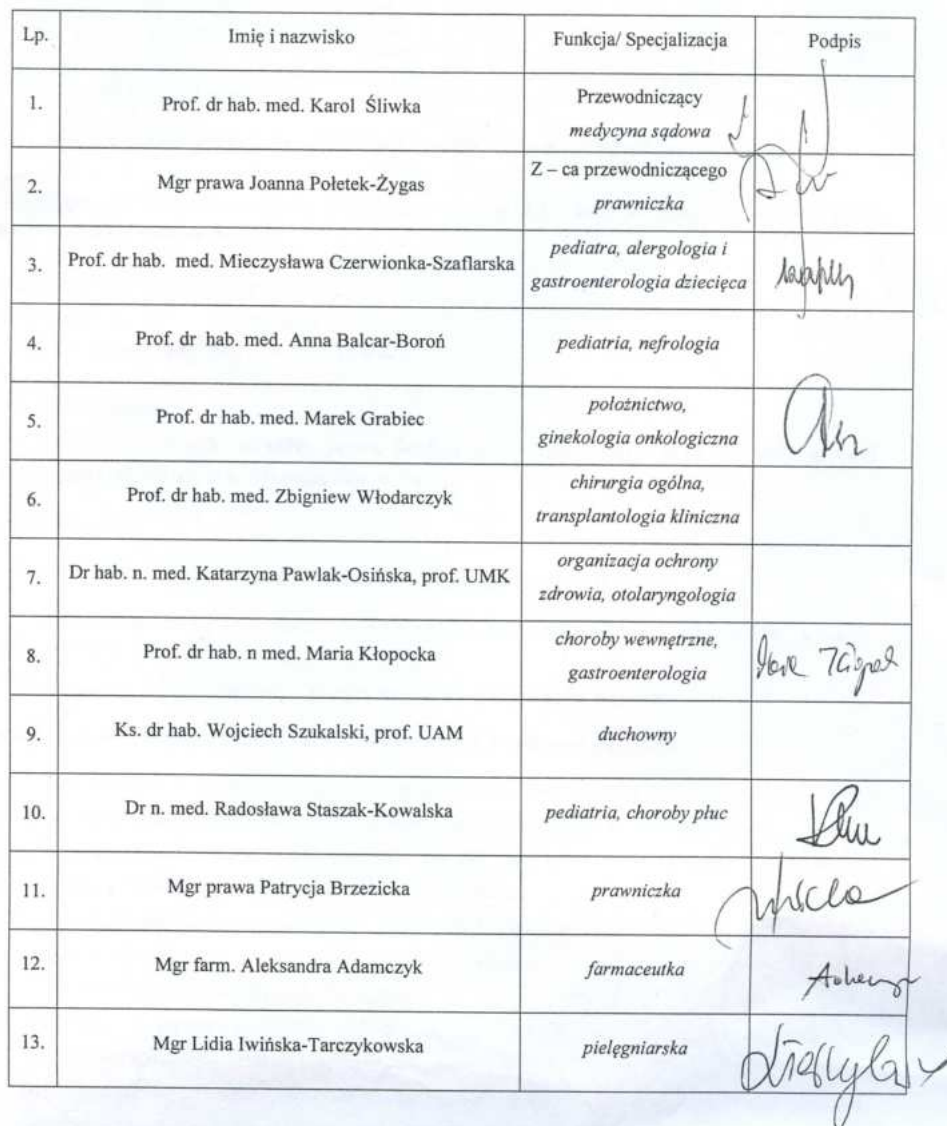 Lp. Imię i nazwisko Funkcja/ Specjalizacja Podpis
1. Prof. dr hab. med. Karol Śliwka Przewodniczący
medycyna sądowa
2. Mgr prawa Joanna Połetek-Żygas Z – ca przewodniczącego
prawniczka
3. Prof. dr hab. med. Mieczysława Czerwionka-Szaflarska pediatra, alergologia i
gastroenterologia dziecięca
4. Prof. dr hab. med. Anna Balcar-Boroń pediatria, nefrologia
5. Prof. dr hab. med. Marek Grabiec położnictwo,
ginekologia onkologiczna
6. Prof. dr hab. med. Zbigniew Włodarczyk chirurgia ogólna,
transplantologia kliniczna
7. Dr hab. n. med. Katarzyna Pawlak-Osińska, prof. UMK organizacja ochrony
zdrowia, otolaryngologia
8. Prof. dr hab. n med. Maria Kłopocka choroby wewnętrzne,
gastroenterologia
9. Ks. dr hab. Wojciech Szukalski, prof. UAM duchowny
10. Dr n. med. Radosława Staszak-Kowalska pediatria, choroby płuc
11. Mgr prawa Patrycja Brzezicka prawniczka
12. Mgr farm. Aleksandra Adamczyk farmaceutka
13. Mgr Lidia Iwińska-Tarczykowska pielęgniarska